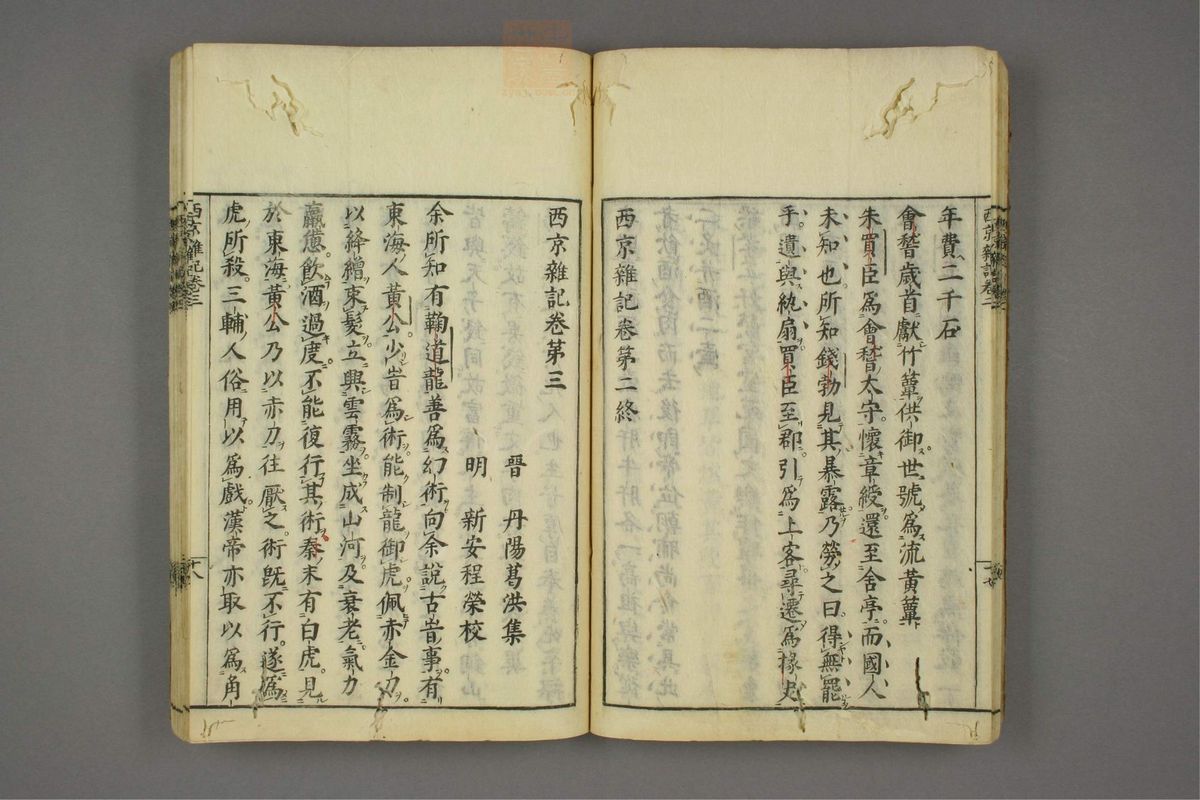 年費二千石
會嵇歳首獻竹簟供御世號爲流黃簟
朱買臣爲會嵇太守懷章綬還至舍亭而國人
未知也所知錢勃見其暴露乃勞之曰得無罷
乎遺與紈扇買臣至郡引爲上客尋遷爲掾史
西京雜記卷第二終
西京雜記卷第三
晉 丹陽葛洪集
明 新安程榮校
余所知有鞠道龍善爲幻術向余說古昔事有
東海人黃公少昔爲術能制龍御虎佩赤金刀
以絳繒束髮立興雲霧坐成山河及衰老氣力
羸憊飲酒過度不能復行其術秦末有白虎見
於東海黃公乃以赤刀往厭之術既不行遂爲
虎所殺三輔人俗用以爲戲漢帝亦取以爲角
西京雜記卷三